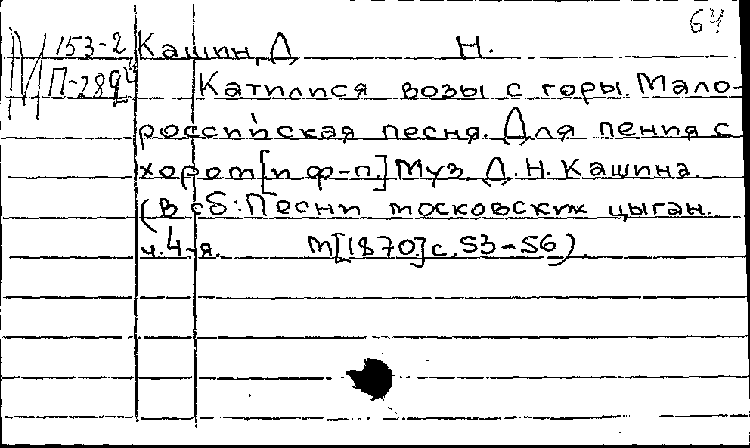 64
М 153-2 Кашин, Д. Н.
П-289 Катился возы с горы. Мало-
российская песня. Для пения с
хором [и ф-п.] Муз. Д. Н. Кашина.
(В сб: Песни московских цыган.
ч. 4-я. М [1870.] с. 53-56).